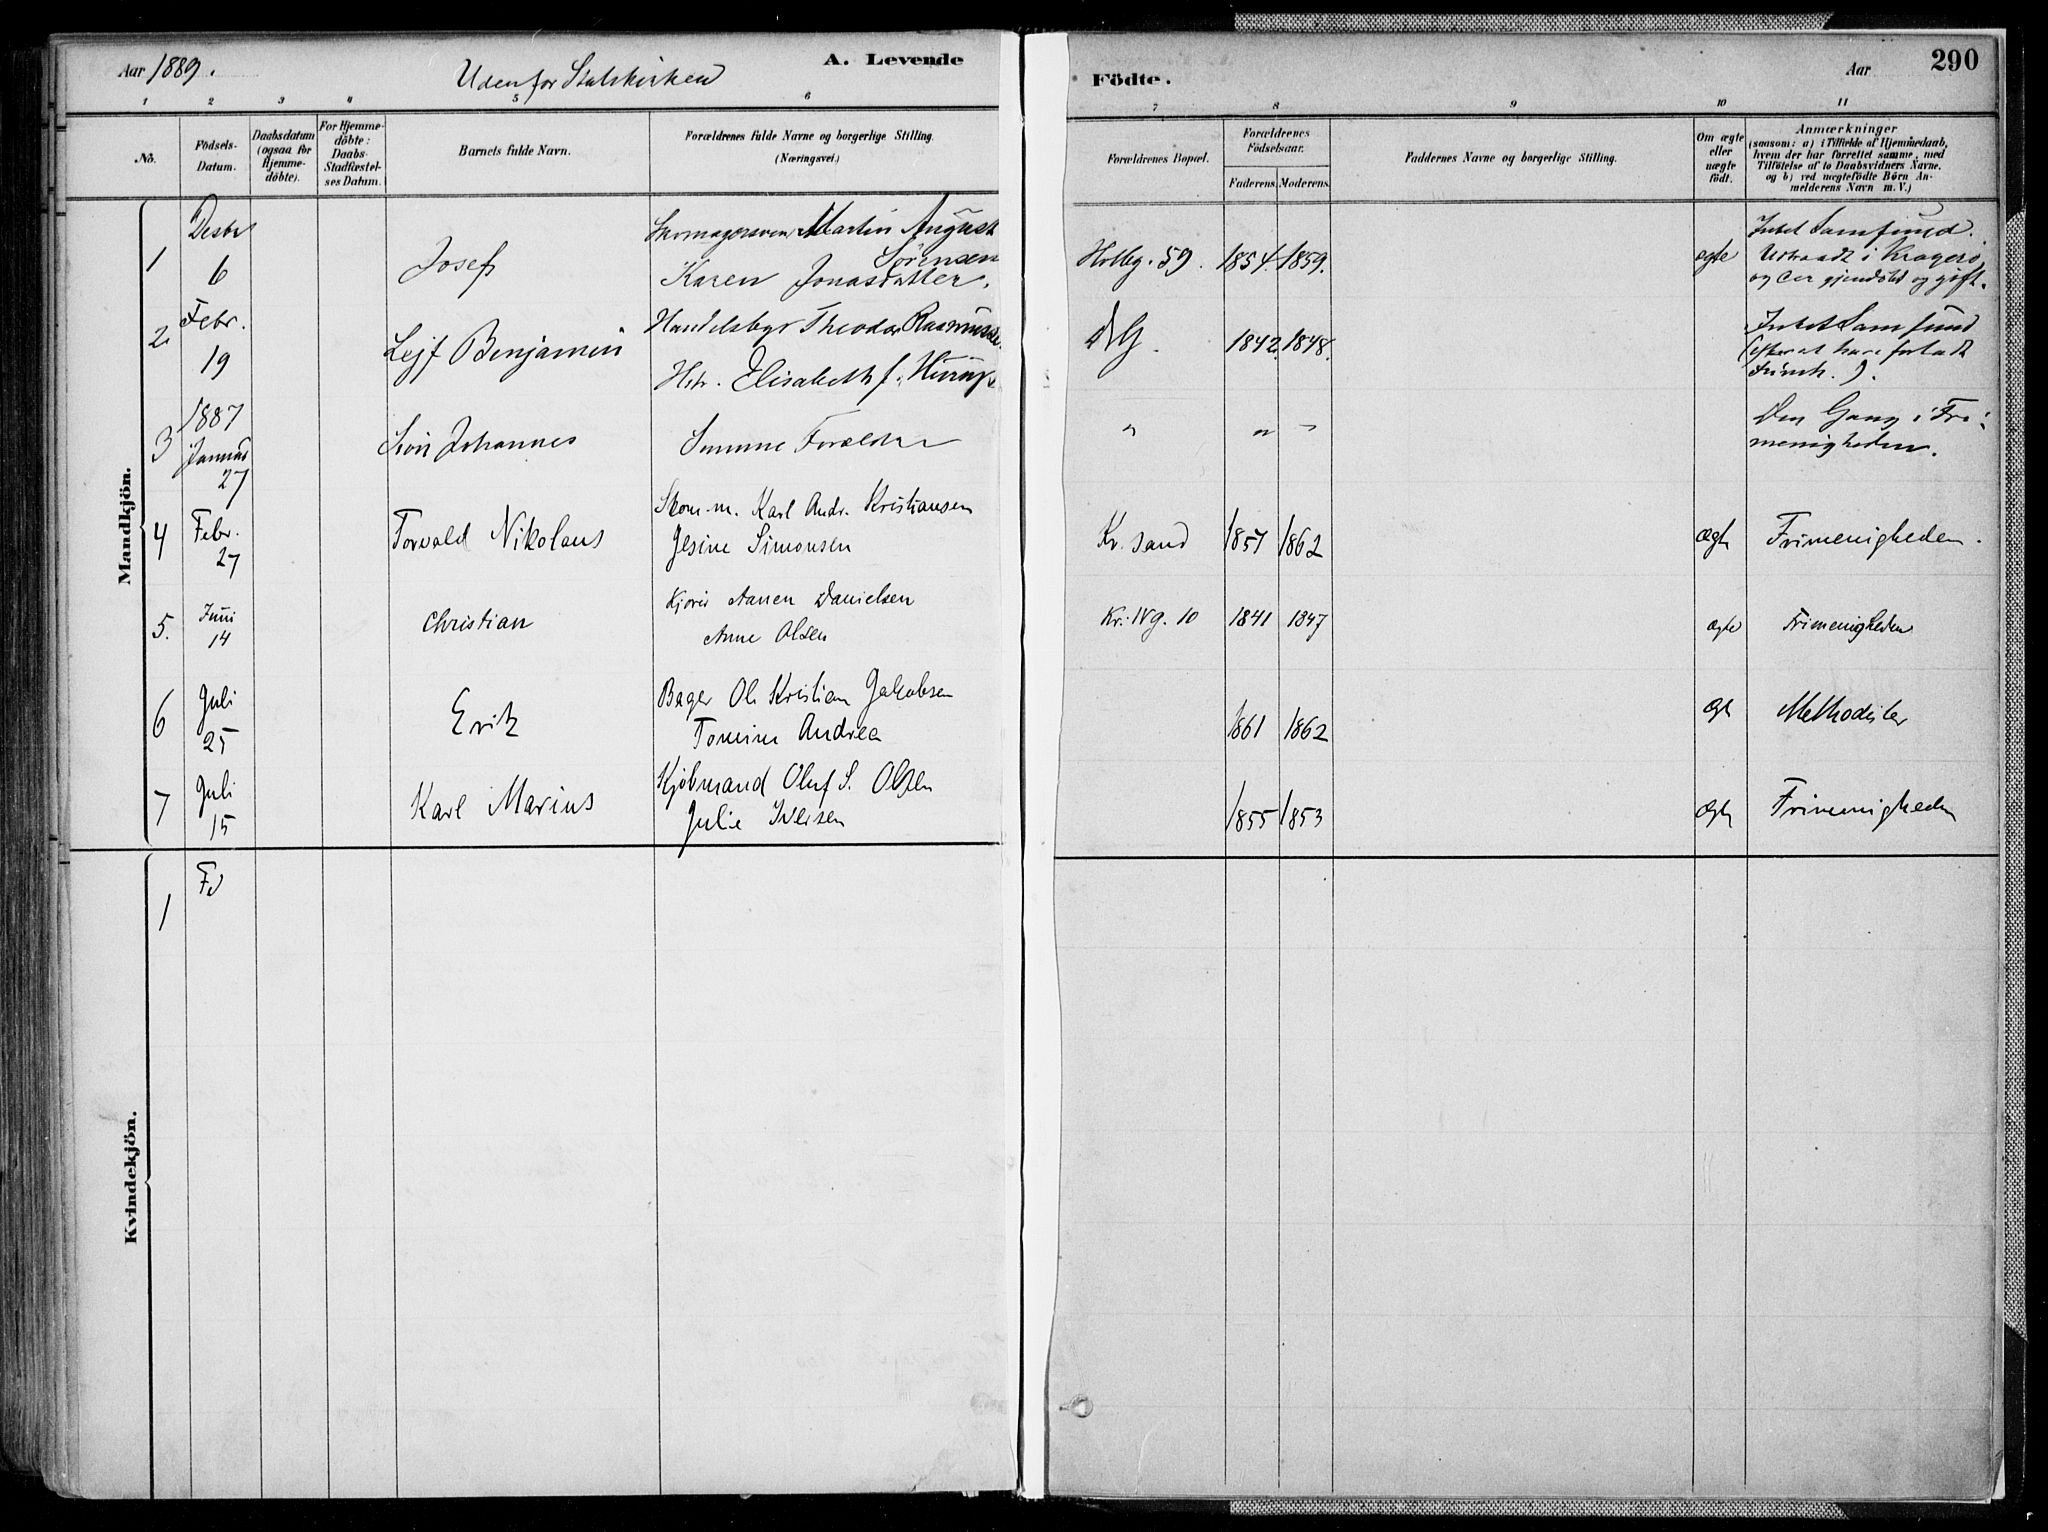 Aar 1889.
Udenfor Statskirken
A. Levende
Födte.
Aar
290
1 2 3 4 5 6 7 8 9 10 11
No.
Födsels-
Datum.
Daabsdatum
(ogsaa for
Hjemme-
döbte).
For Hjemme-
döbte:
Daabs-
Stadfæstel-
ses Datum.
Barnets fulde Navn.
Forældrenes fulde Navne og borgerlige Stilling.
(Næringsvei.)
Forældrenes Bopæl.
Forældrenes
Födselsaar.
Faderens. Moderens.
Faddernes Navne og borgerlige Stilling.
Om ægte
eller
uægte
födt.
Anmærkninger
(saasom: a) i Tilfælde af Hjemmedaab,
hvem der har forrettet samme, med
Tilföielse af to Daabsvidners Navne,
og b) ved uægtefödte Börn An-
melderens Navn m. V.)
Mandkjön.
1
Desbr
6
Josef
Skomagersvend Martin August
Sörensen
Karen Jonasdatter.
Holbg. 59. 1854. 1859.
ægte
Intet Samfund.
Udtraadt i Kragerö
og der gjendöbt og gift.
2
Febr.
19
Lejf Benjamin
Handelsbgr Theodor Rasmussen
Hstr. Elisabeth f.
1842. 1848.
Intet Samfund
(efter at have forladt
Frimh.).
3
1887
Januar
27
Sön Johannes
Samme Forældre
" " "
Den Gang i Fri-
menigheden.
4
Febr.
27
Torvald Nikolaus
Skom. m. Karl Andr. Kristiansen
Jesine Simonsen
Kr.sand 1857 1862
Ægte
Frimenigheden.
5.
Juni
14
Christian
Aanen Danielsen
Anne Olsen
Kr. IVg. 10 1841 1847
ægte
Frimenigheden
6
Juli
25
Erik
Bager Ole Kristian Jakobsen
Tomine Andrea
1861 1862
Ægte
Methodister
7
Juli
15
Karl Marius
Kjöbmand Oluf S. Olsen
Julie Iversen
1855 1853
Ægte
Frimenigheden
Kvindekjön.
1
Fe